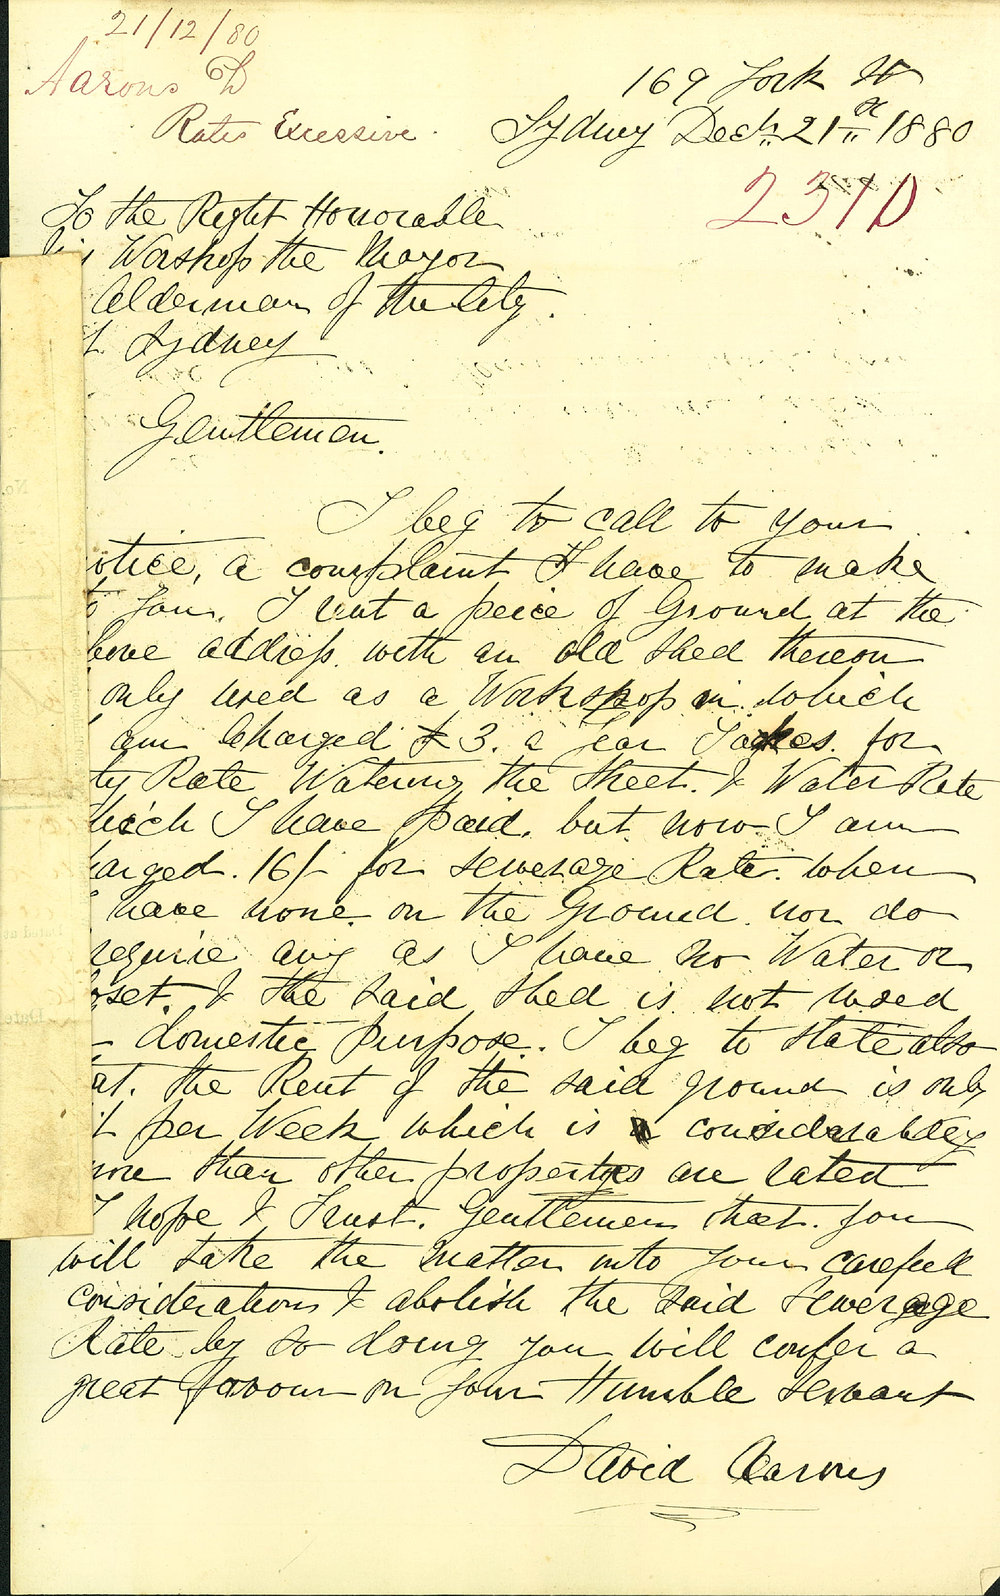 21/12/80
Aarons D
Rates Excessive.
169 York St
Sydney Decr. 21st 1880
2310
To the Right Honorable
his Worshop the Mayor
Alderman of the City.
Sydney
Gentlemen.
I beg to call to your
otice, a complaint I have to make
to you. I rent a peice of Ground at the
bove address with an old shed thereon
only used as a Workshop in which
am Charged £3. a year Taxes. for
ty Rate Watering the Street. & Water Rate
hich I have paid. but now I am
harged. 16/- for sewerage Rate. when
have none on the Ground nor do
require any as I have no Water or
oset. & the said shed is not used
domestic purpose. I beg to state also
at. the Rent of the said ground is only
per Week which is considerabley
more than other propertys are rated
I hope & Trust. Gentlemen that. you
will take the matter into your carefull
considerations & abolish the said Sewerage
Rate by so doing you will confer a
great favour on your Humble servant
David Aarons